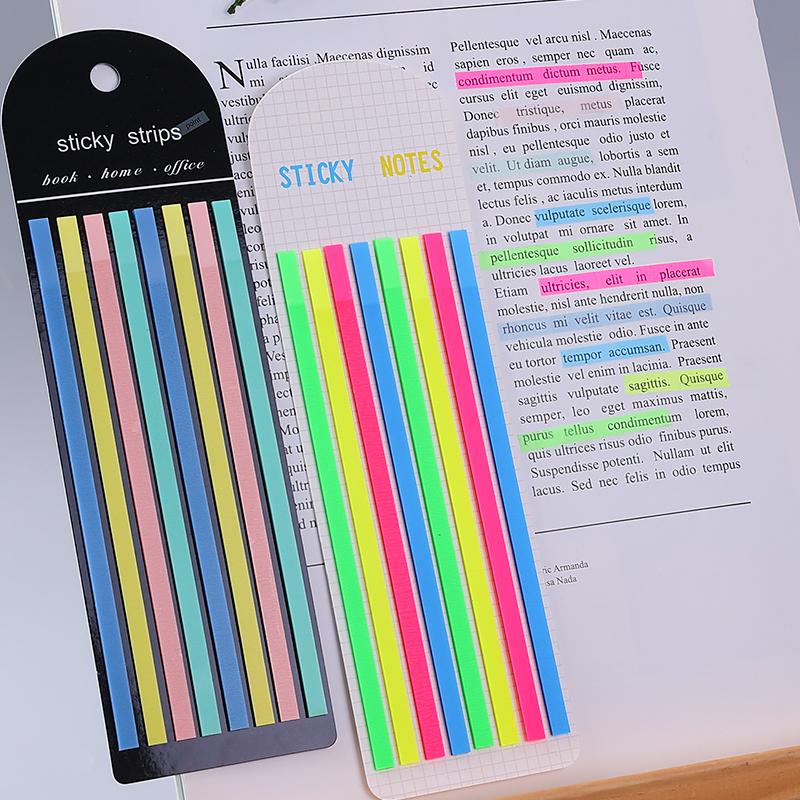 sticky strips
point
book · home · office
STICKY NOTES
Nulla facilisi .Maecenas dignissim
mi id
Pellentesque vel arcu nisl . Maecenas
sapien eros , semper nec quam ac,
condimentum dictum metus. Fusce
cursus elit eget euismod dignissim,
Donec tristique, metus placerat
dapibus finibus , orci mauris molestie
nisl , eu pellentesque odio justo et
velit. Ut diam augue, lobortis a sem
et, tempus commodo ex. Nulla blandit
lectus felis , ac iaculis metus interdum
a. Donec vulputate scelerisque lorem,
in volutpat mi ornare sit amet. In
pellentesque sollicitudin risus, a
ultricies lacus laoreet vel.
Etiam ultricies, elit in placerat
molestie, nisl ante hendrerit nulla, non
rhoncus mi velit vitae est. Quisque
vehicula molestie odio. Fusce in ante
eu tortor tempor accumsan. Praesent
molestie vel enim in lacinia. Praesent
sagittis vulputate sagittis. Quisque
semper, leo eget maximus mattis,
purus tellus condimentum lorem,
quis ultrices risus odio finibus purus.
Suspendisse potenti. Nullam ut elit
lacus. Sed nec felis in odio tempus
Armanda
Nada